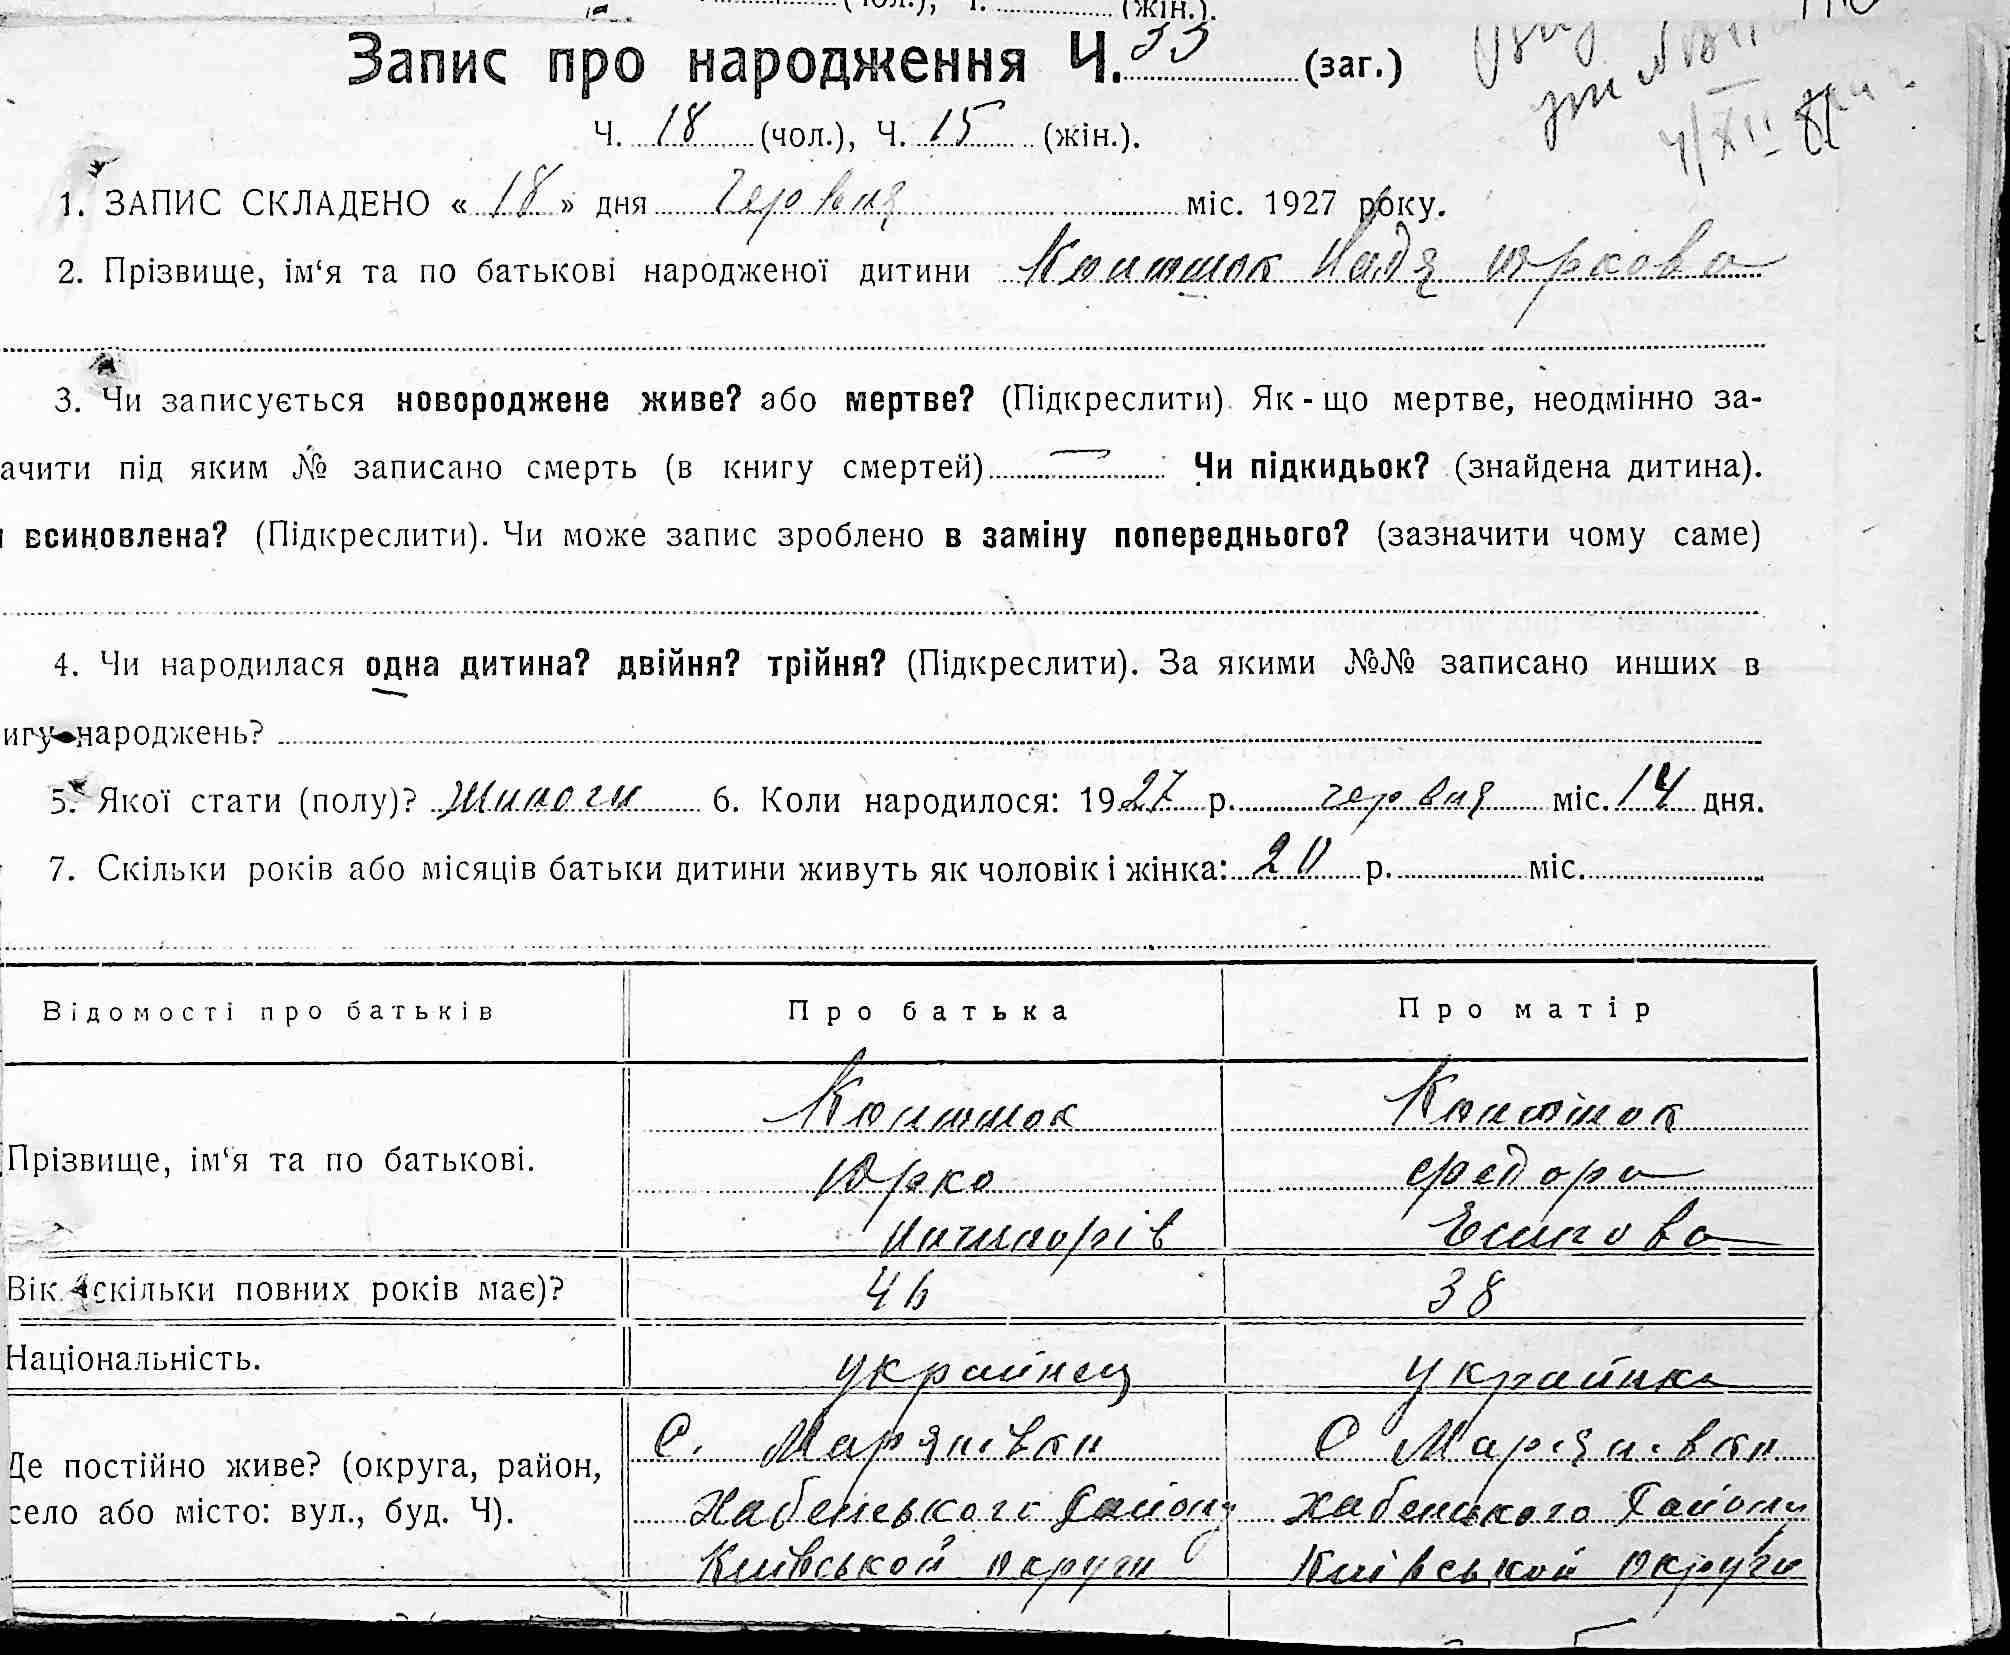 (чол.), Ч. (жін.).
Запис про народження Ч. 33 (заг.)
Ч. 18 (чол.), Ч. 15 (жін.).
1. ЗАПИС СКЛАДЕНО « 18 » дня червня міс. 1927 року.
2. Прізвище, ім‘я та по батькові народженої дитини Надя Юркова
3. Чи записується новороджене живе? або мертве? (Підкреслити). Як - що мертве, неодмінно за-
ачити під яким № записано смерть (в книгу смертей) — Чи підкидьок? (знайдена дитина).
и всиновлена? (Підкреслити). Чи може запис зроблено в заміну попереднього? (зазначити чому саме)
4. Чи народилася одна дитина? двійня? трійня? (Підкреслити). За якими №№ записано инших в
игу народжень?
5. Якої стати (полу)? жиночи 6. Коли народилося: 1927 р. червня міс. 14 дня.
7. Скільки років або місяців батьки дитини живуть як чоловік і жінка: 20 р. міс.
Відомості про батьків Про батька Про матір
Прізвище, ім‘я та по батькові.
Юрко Федора
Ничипорів
Вік (скільки повних років має)? 46 38
Національність. украйнец украйинка
Де постійно живе? (округа, район, село або місто: вул., буд. Ч).
С. Марянівки С Марянівки
Хабенського району Хабенського Району
Киівськой округи Киівськой Округи